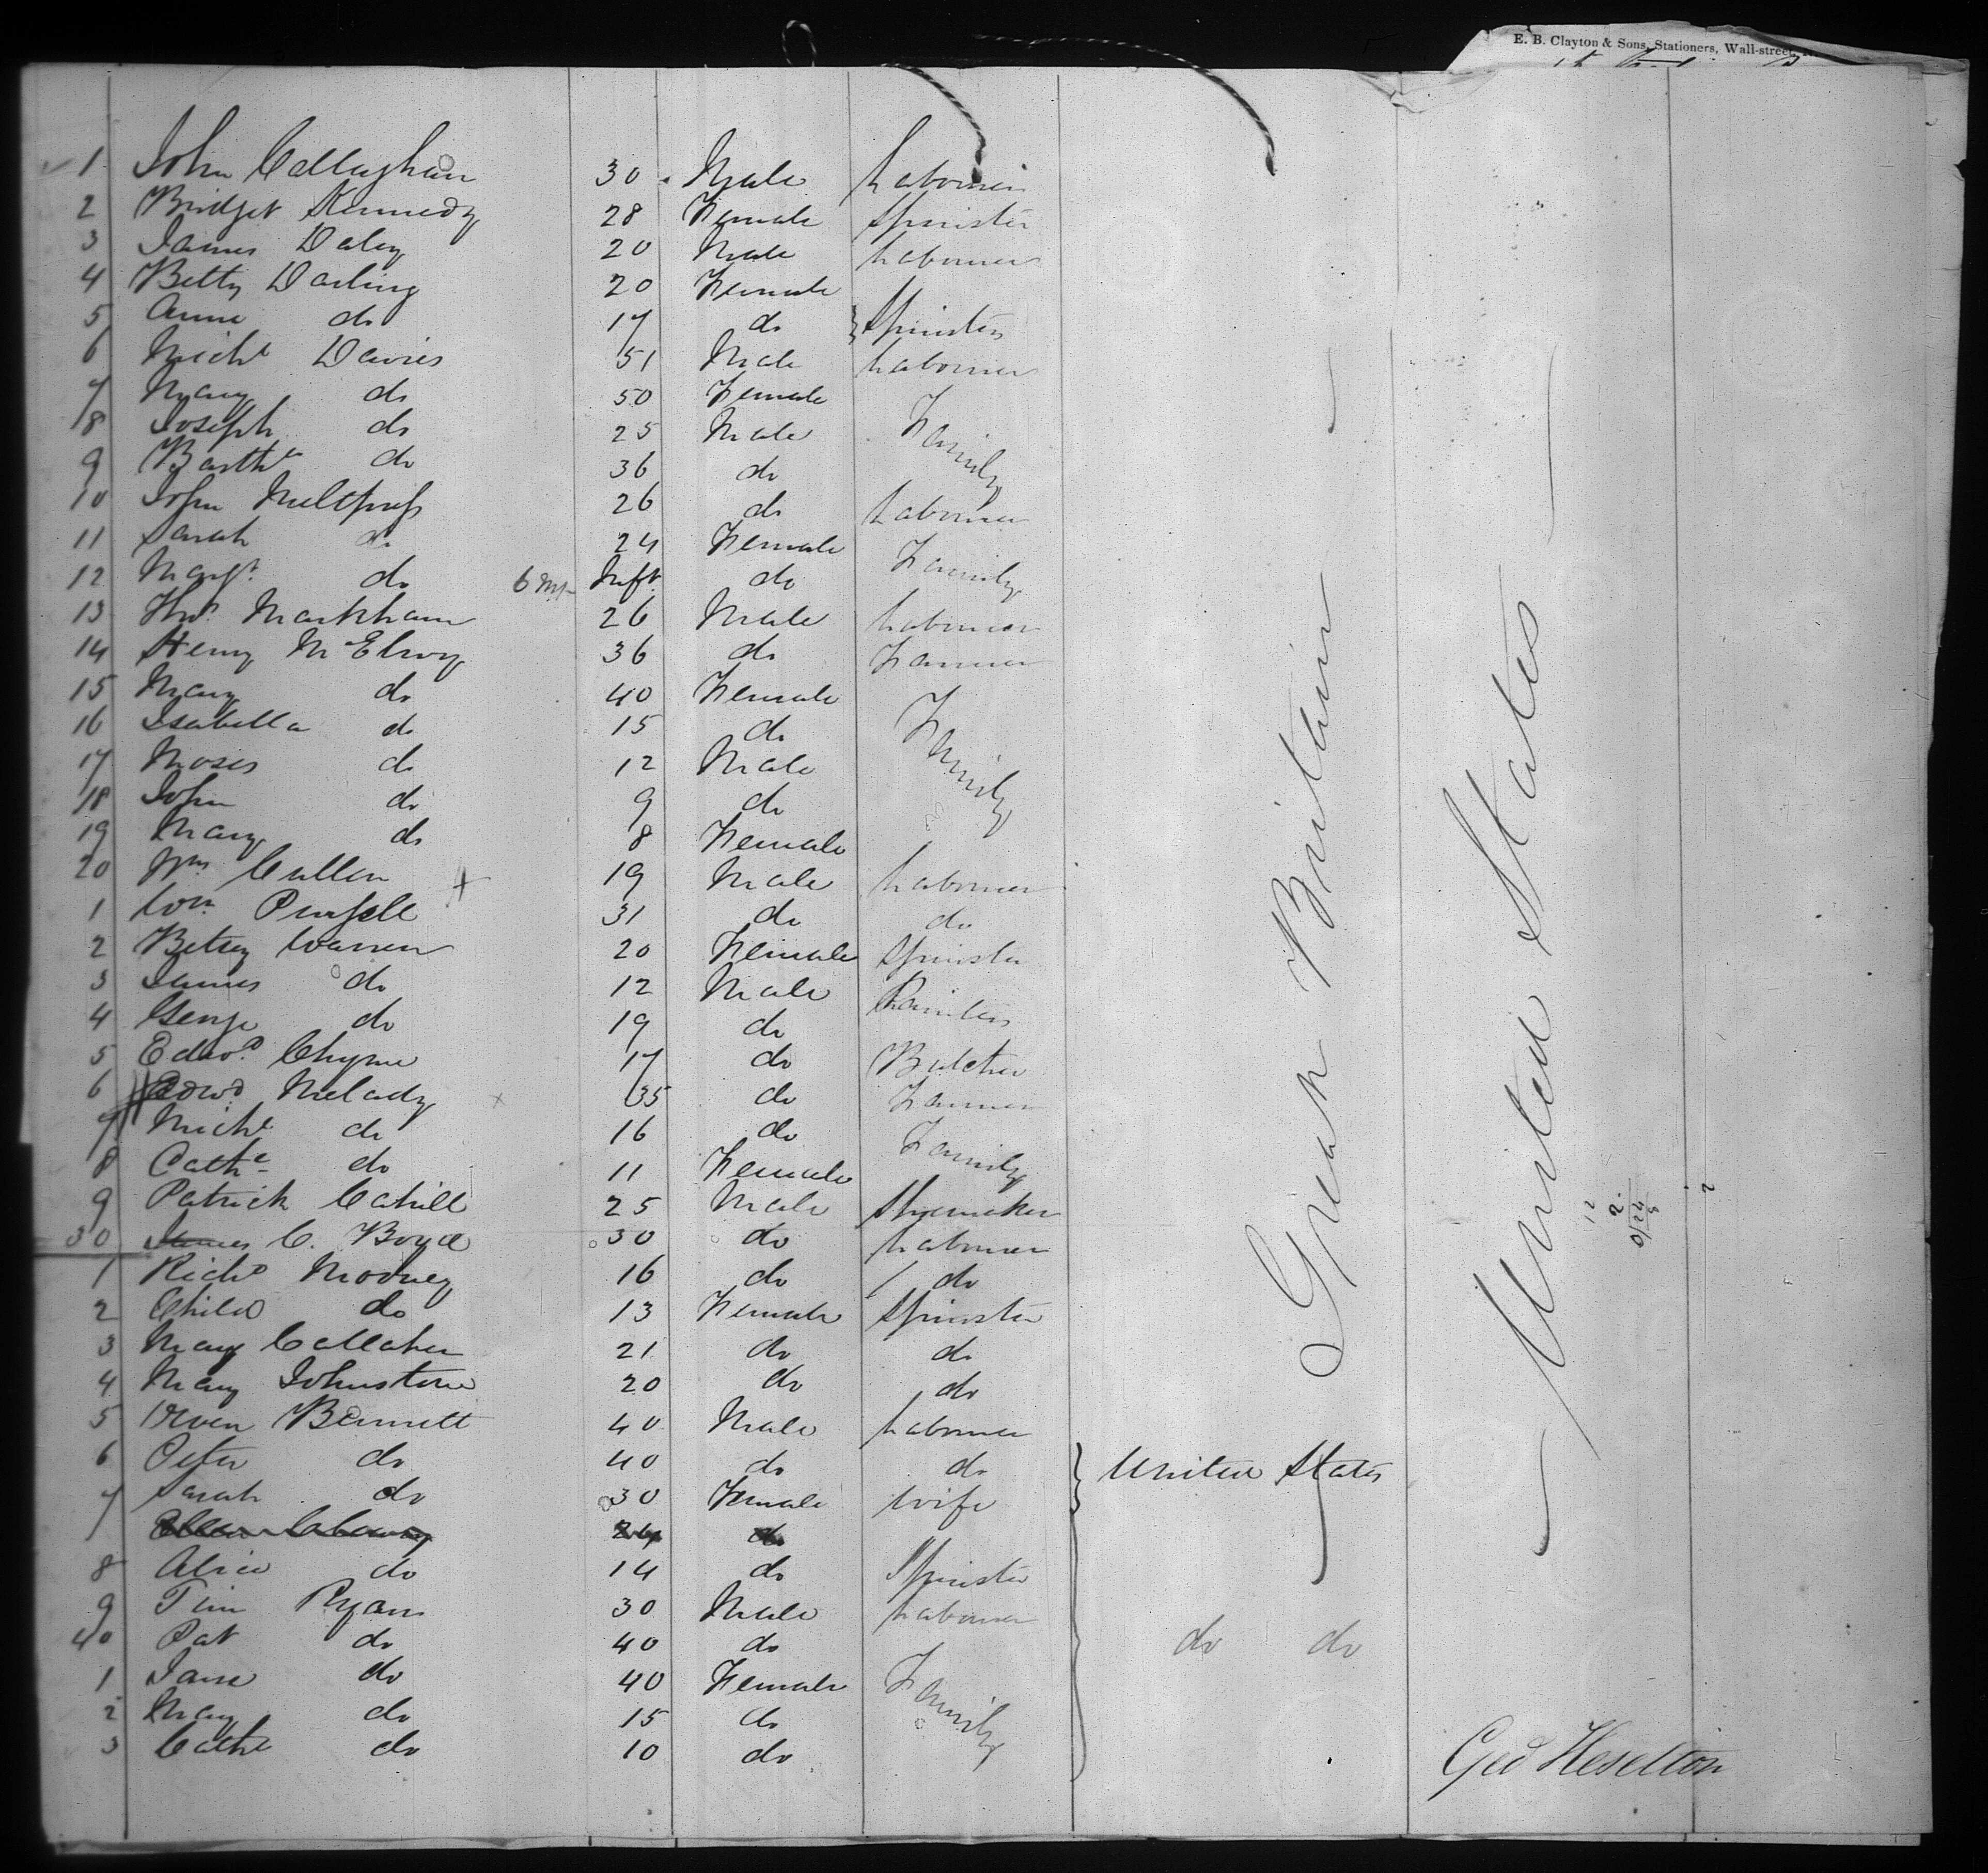 E. B. Clayton & Sons, Stationers, Wall-street,
1 John Callaghan 30 Male Labourer
2 Bridget Kennedy 28 Female Spinster
3 James Daley 20 Male Labourer
4 Betty Darling 20 Female
5 Anne do 17 do } Spinsters
6 Michl Davies 51 Male Labourer
7 Mary do 50 Female
8 Joseph do 25 Male Family
9 Barthw do 36 do
10 John 26 do Labourer
11 Sarah do 24 Female
12 Margt do 6 Ms Inft do Family
13 Thos Markham 26 Male Labourer
14 Henry McElroy 36 do Farmer
15 Mary do 40 Female
16 Isabella do 15 do Family
17 Moses do 12 Male
18 John do 9 do
19 Mary do 8 Female
20 Wm Cullen 19 Male Labourer
1 Wm Pursell 31 do do
2 Betsey Warren 20 Female Spinster
3 James do 12 Male
4 George do 19 do Painters
5 Edwd Chyme 17 do Butcher
6 Edwd Melady 35 do Farmer
7 Michl do 16 do
8 Cathe do 11 Female Family
9 Patrick Cahill 25 Male Shoemaker
30 James C. Boyd 30 do Labourer
1 Richd Mooney 16 do do
2 Child do 13 Female Spinster
3 Mary Callahan 21 do do
4 Mary Johnstone 20 do do
5 Owen Bennett 40 Male Labourer
6 Peter do 40 do do
7 Sarah do 30 Female Wife
Ellen 24 do
8 Alice do 14 do Spinster
9 Tim Ryan 30 Male Labourer
40 Pat do 40 do
1 Jane do 40 Female Family
2 Mary do 15 do
3 Cathe do 10 do
Great Britain
United States
United States
do do
Geo Heselton